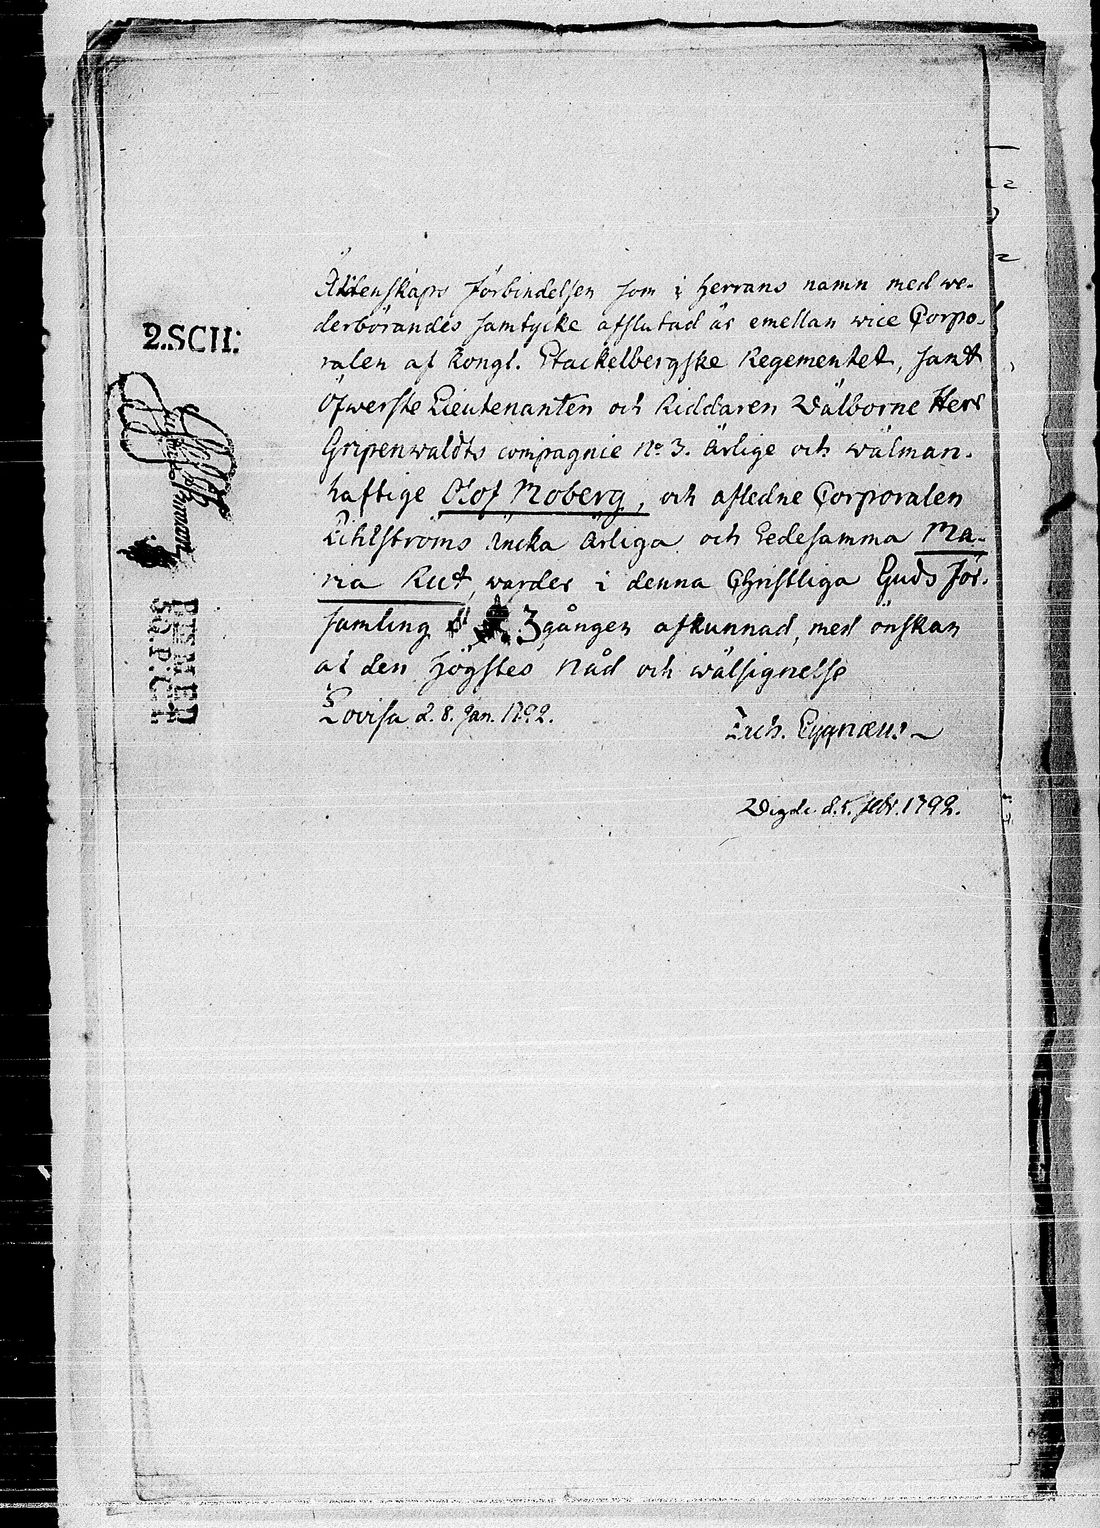 2.SCH:
Ächtenskaps förbindelsen som i Herrans namn med we-
derbörandes samtycke afslutad är emellan vice Corpo-
ralen af Kongl. Stackelbergske Regementet, samt
Öfwerste Lieutenanten och Riddaren Wälborne Herr
Gripenwaldts compagnie No 3. Ärlige och wälman-
haftige Olof Moberg, och afledne Corporalen
Lihlströms äncka Ärliga och Gedesamma Ma-
ria Rut, warder i denna Christliga Guds För-
samling 3 gången afkunnad, med önskan
af den Högstes Nåd och wälsignelse
Lovisa d. 8. Jan. 1792.
Erich. Cygnæus
Wigde d. 5. febr. 1792.